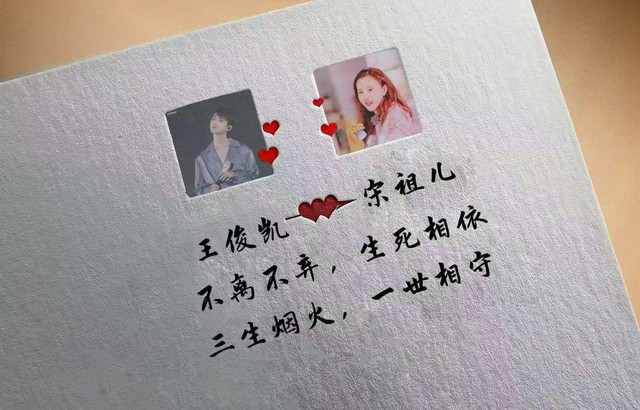 王俊凯 宋祖儿
不离不弃，生死相依
三生烟火，一世相守